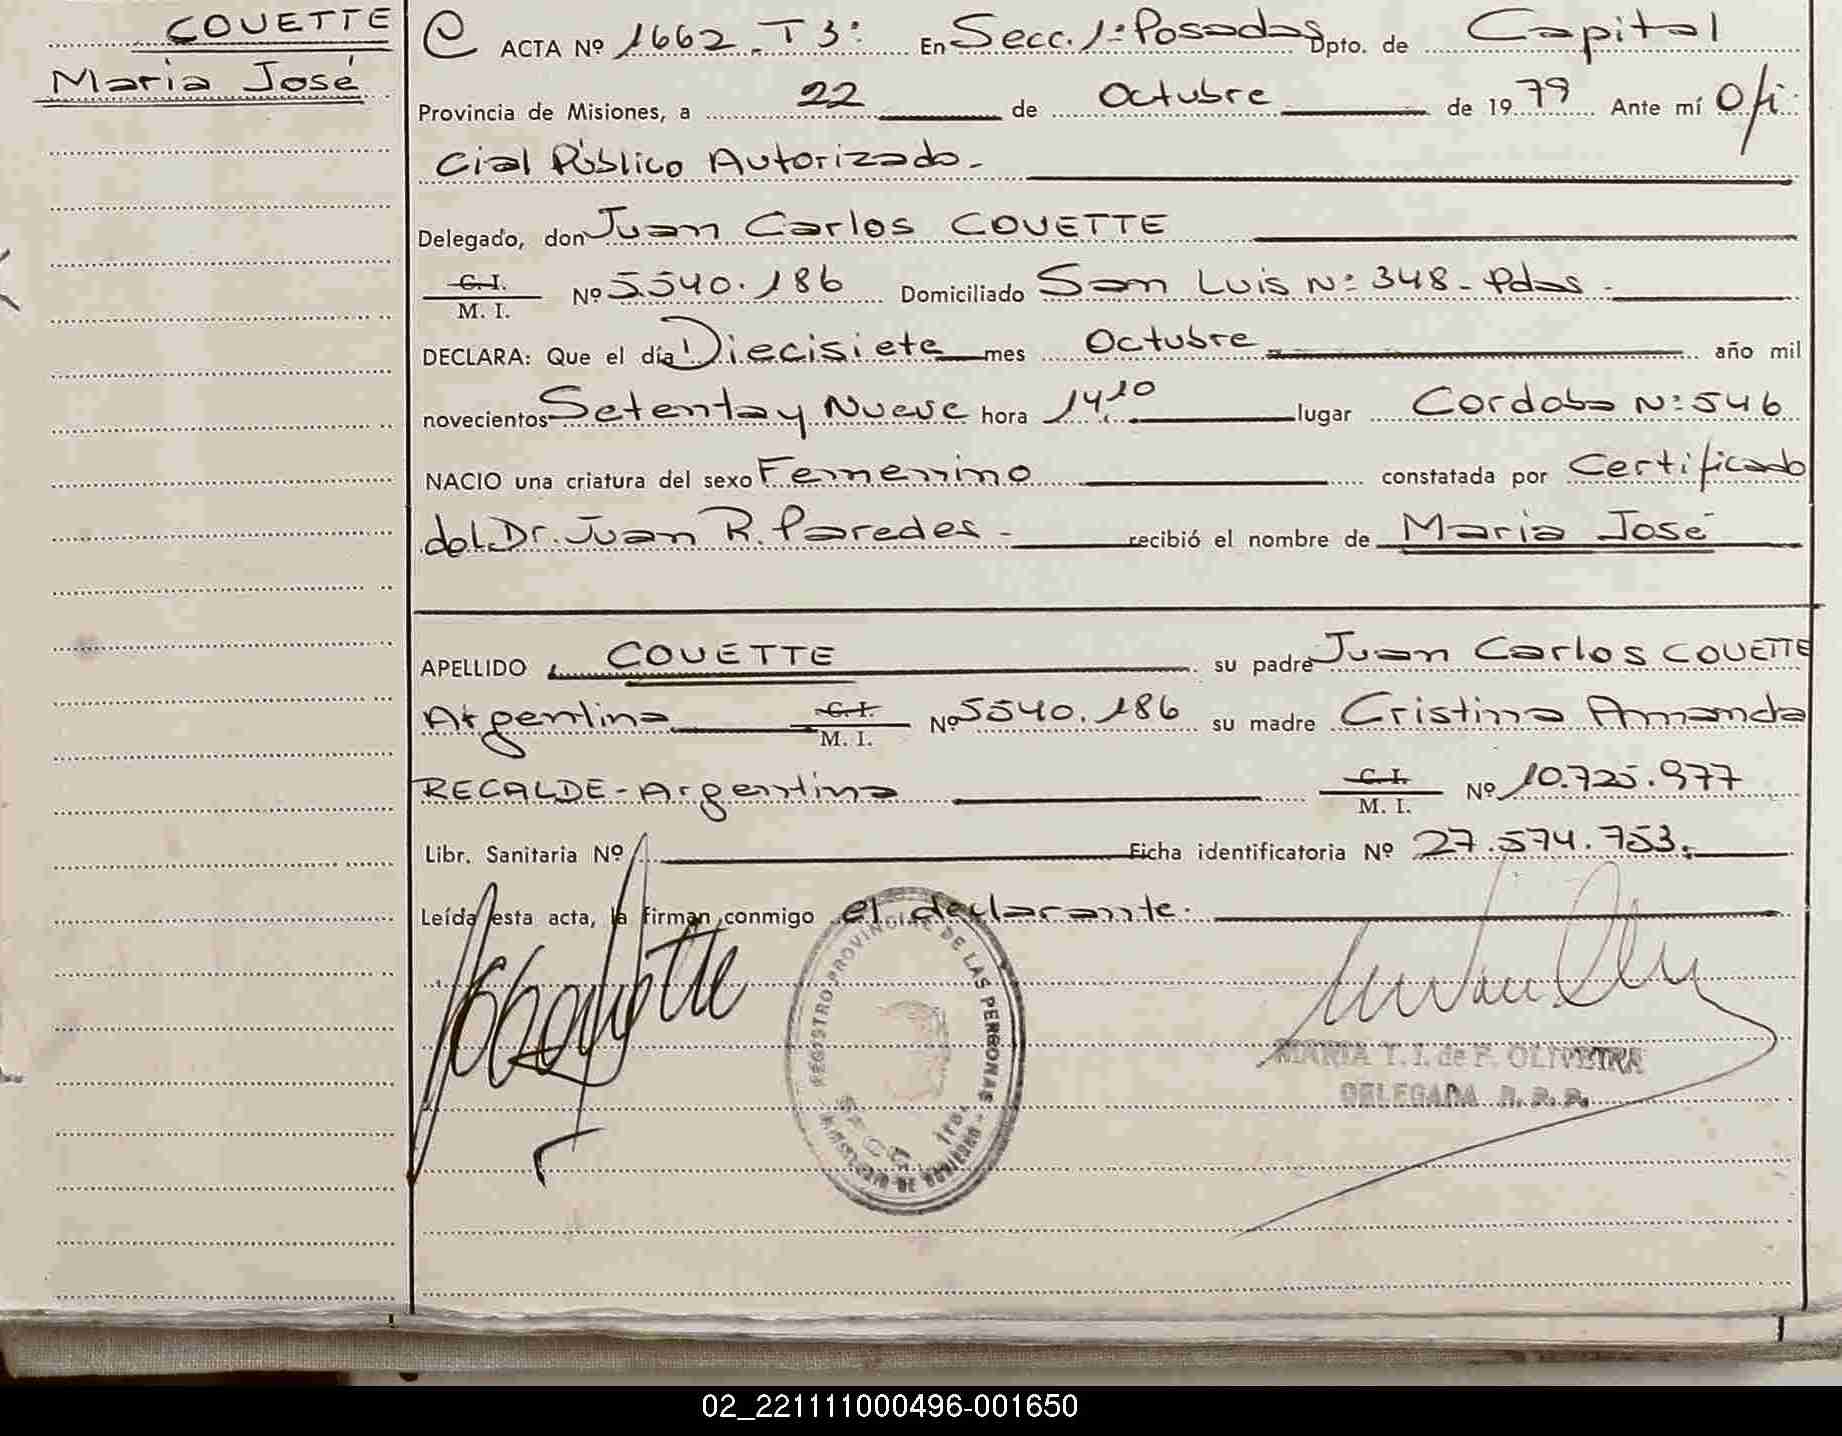 COUETTE
Maria José
ACTA Nº 1662. T 3º En Secc. 1ª Posadas Dpto. de Capital
Provincia de Misiones, a 22 de Octubre de 1979 Ante mí Ofi
cial Público Autorizado -
Delegado, don Juan Carlos COUETTE
C. I. / M. I. Nº 5.540.186 Domiciliado San Luis Nº 348 - Pdas -
DECLARA: Que el día Diecisiete mes Octubre año mil
novecientos Setenta y Nueve hora 14,10 lugar Cordoba Nº 546
NACIO una criatura del sexo Femenino constatada por Certificado
del Dr. Juan R. Paredes - recibió el nombre de Maria José
APELLIDO COUETTE su padre Juan Carlos COUETTE
Argentino C. I. / M. I. Nº 5540.186 su madre Cristina Amanda
RECALDE - Argentina C. I. / M. I. Nº 10.725.977
Libr. Sanitaria Nº Ficha identificatoria Nº 27.574.753.
Leída esta acta, la firman conmigo el declarante.
REGISTRO PROVINCIAL DE LAS PERSONAS
SECC. 1ra.
MINISTERIO DE GOBIERNO
MARIA T. I. de F. OLIVEIRA
DELEGADA R. P. P.
02_221111000496-001650